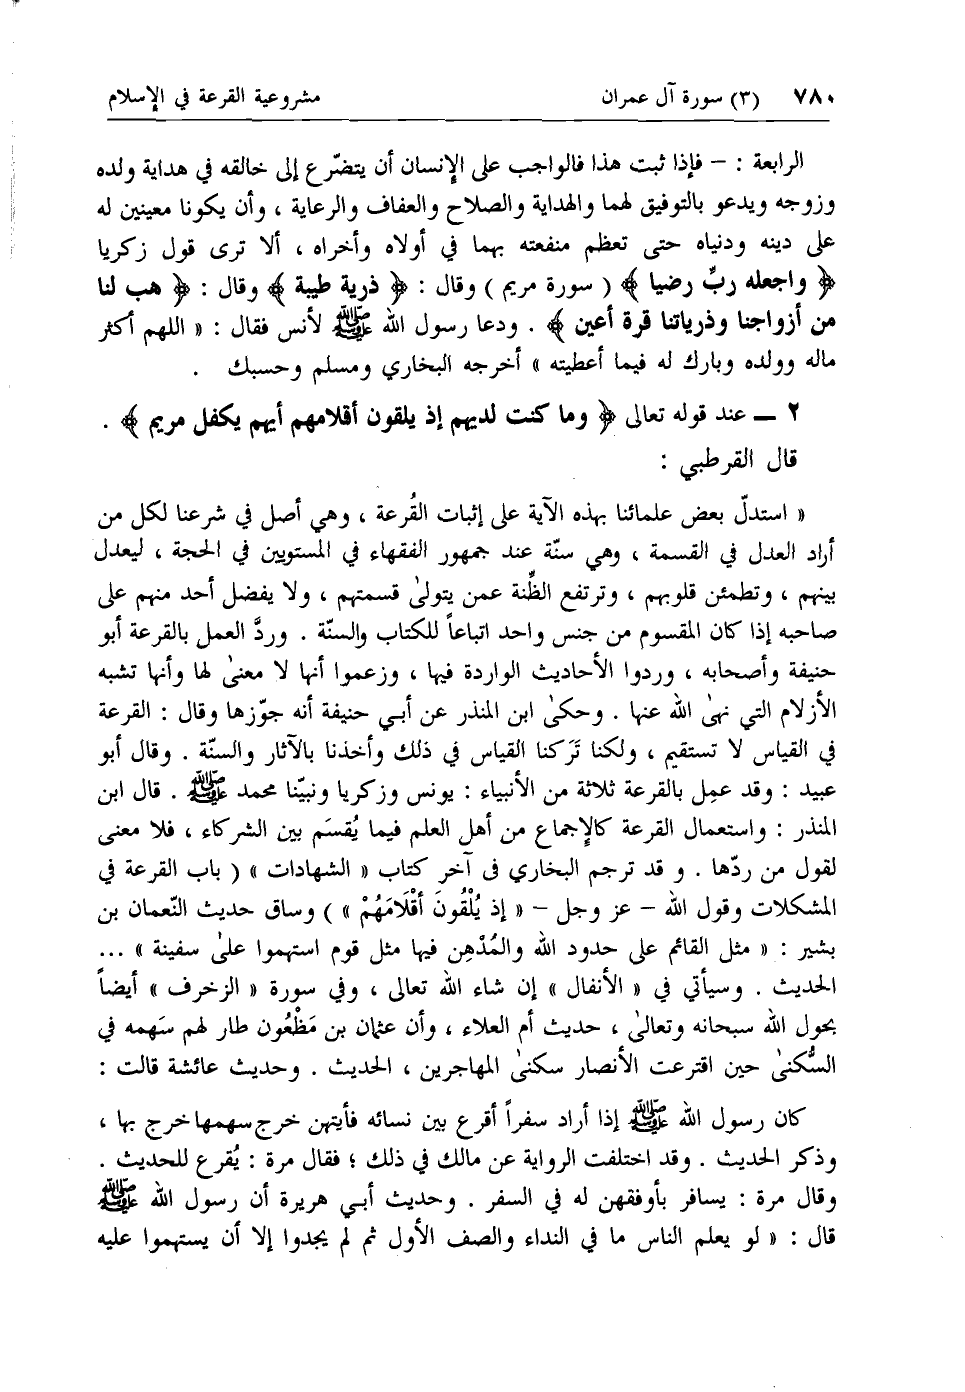 ٧٨٠ (٣) سورة آل عمران مشروعية القرعة في الإسلام
الرابعة : – فإذا ثبت هذا فالواجب على الإنسان أن يتضرّع إلى خالقه في هداية ولده
وزوجه ويدعو بالتوفيق لهما والهداية والصلاح والعفاف والرعاية ، وأن يكونا معينين له
على دينه ودنياه حتى تعظم منفعته بهما في أولاه وأخراه ، ألا ترى قول زكريا
﴿ واجعله ربِّ رضيا ﴾ ( سورة مريم ) وقال : ﴿ ذرية طيبة ﴾ وقال : ﴿ هب لنا
من أزواجنا وذرياتنا قرة أعين ﴾ . ودعا رسول الله ﷺ لأنس فقال : « اللهم أكثر
ماله وولده وبارك له فيما أعطيته » أخرجه البخاري ومسلم وحسبك .
٢ ــ عند قوله تعالى ﴿ وما كنت لديهم إذ يلقون أقلامهم أيهم يكفل مريم ﴾ .
قال القرطبي :
« استدلّ بعض علمائنا بهذه الآية على إثبات القُرعة ، وهي أصل في شرعنا لكل من
أراد العدل في القسمة ، وهي سنّة عند جمهور الفقهاء في المستويين في الحجة ، ليعدل
بينهم ، وتطمئن قلوبهم ، وترتفع الظِّنة عمن يتولىٰ قسمتهم ، ولا يفضل أحد منهم على
صاحبه إذا كان المقسوم من جنس واحد اتباعاً للكتاب والسنّة . وردَّ العمل بالقرعة أبو
حنيفة وأصحابه ، وردوا الأحاديث الواردة فيها ، وزعموا أنها لا معنىٰ لها وأنها تشبه
الأزلام التي نهىٰ الله عنها . وحكىٰ ابن المنذر عن أبي حنيفة أنه جوّزها وقال : القرعة
في القياس لا تستقيم ، ولكنا تَركنا القياس في ذلك وأخذنا بالآثار والسنّة . وقال أبو
عبيد : وقد عمِل بالقرعة ثلاثة من الأنبياء : يونس وزكريا ونبيّنا محمد ﷺ . قال ابن
المنذر : واستعمال القرعة كالإجماع من أهل العلم فيما يُقسَم بين الشركاء ، فلا معنى
لقول من ردّها . و قد ترجم البخاري فى آخر كتاب « الشهادات » ( باب القرعة في
المشكلات وقول الله – عز وجل – « إذ يُلْقُونَ أقْلَامَهُمْ » ) وساق حديث النّعمان بن
بشير : « مثل القائم على حدود الله والمُدْهِن فيها مثل قوم استهموا علىٰ سفينة » ...
الحديث . وسيأتي في « الأنفال » إن شاء الله تعالى ، وفي سورة « الزخرف » أيضاً
بحول الله سبحانه وتعالىٰ ، حديث أم العلاء ، وأن عثمان بن مَظْعُون طار لهم سَهمه في
السُّكنىٰ حين اقترعت الأنصار سكنىٰ المهاجرين ، الحديث . وحديث عائشة قالت :
كان رسول الله ﷺ إذا أراد سفراً أقرع بين نسائه فأيتهن خرج سهمها خرج بها ،
وذكر الحديث . وقد اختلفت الرواية عن مالك في ذلك ؛ فقال مرة : يُقرع للحديث .
وقال مرة : يسافر بأوفقهن له في السفر . وحديث أبي هريرة أن رسول الله ﷺ
قال : « لو يعلم الناس ما في النداء والصف الأول ثم لم يجدوا إلا أن يستهموا عليه